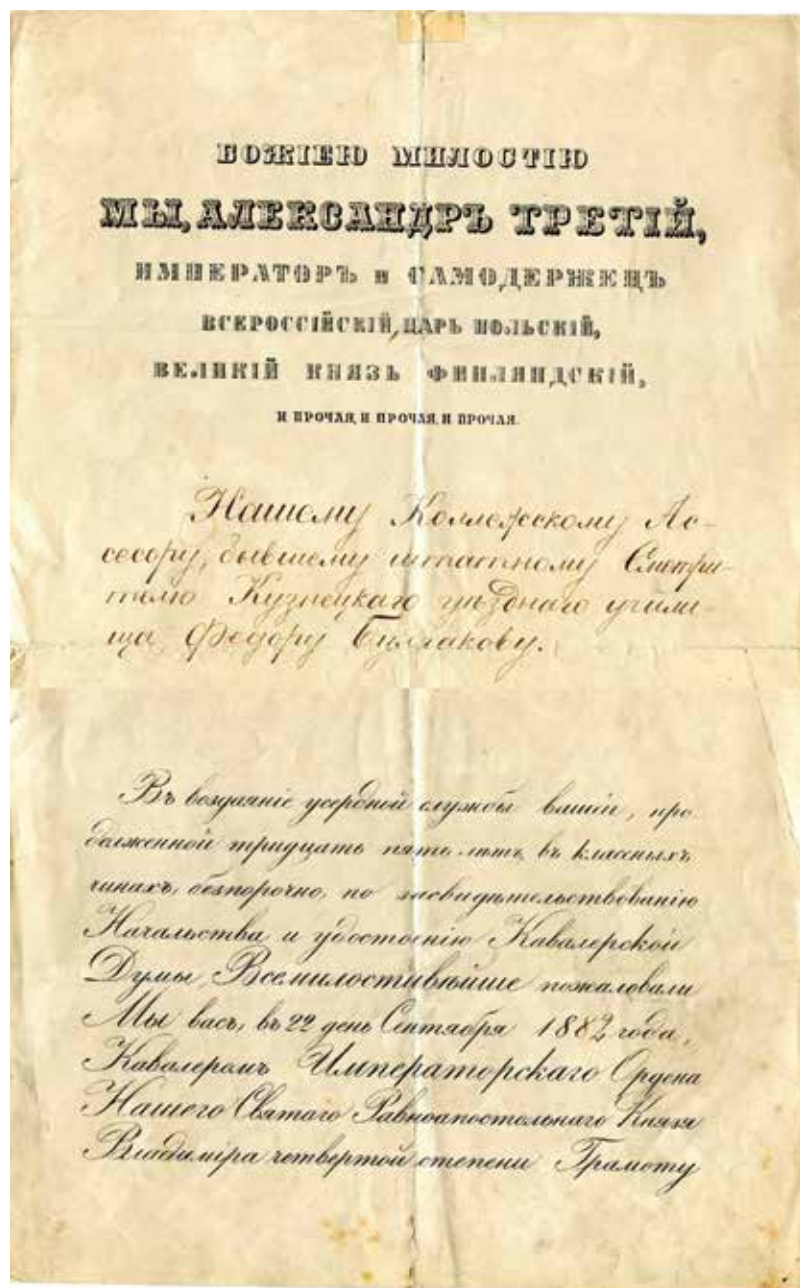 БОЖІЕЮ МИЛОСТІЮ
МЫ, АЛЕКСАНДРЪ ТРЕТІЙ,
ИМПЕРАТОРЪ и САМОДЕРЖЕЦЪ
ВСЕРОССІЙСКІЙ, ЦАРЬ ПОЛЬСКІЙ,
ВЕЛИКІЙ КНЯЗЬ ФИНЛЯНДСКІЙ,
И ПРОЧАЯ, И ПРОЧАЯ, И ПРОЧАЯ.
Нашему Коллежскому Ас-
сесору, бывшему штатному Смотри-
телю Кузнецкаго уѣзднаго учили-
ща, Федору Булгакову.
Въ воздаяніе усердной службы вашей, про-
долженной тридцать пять лѣтъ, въ классныхъ
чинахъ, безпорочно, по засвидѣтельствованію
Начальства и удостоенію Кавалерской
Думы, Всемилостивѣйше пожаловали
Мы васъ, въ 22 день Сентября 1882 года,
Кавалеромъ Императорскаго Ордена
Нашего Святаго Равноапостольнаго Князя
Владиміра четвертой степени Грамоту